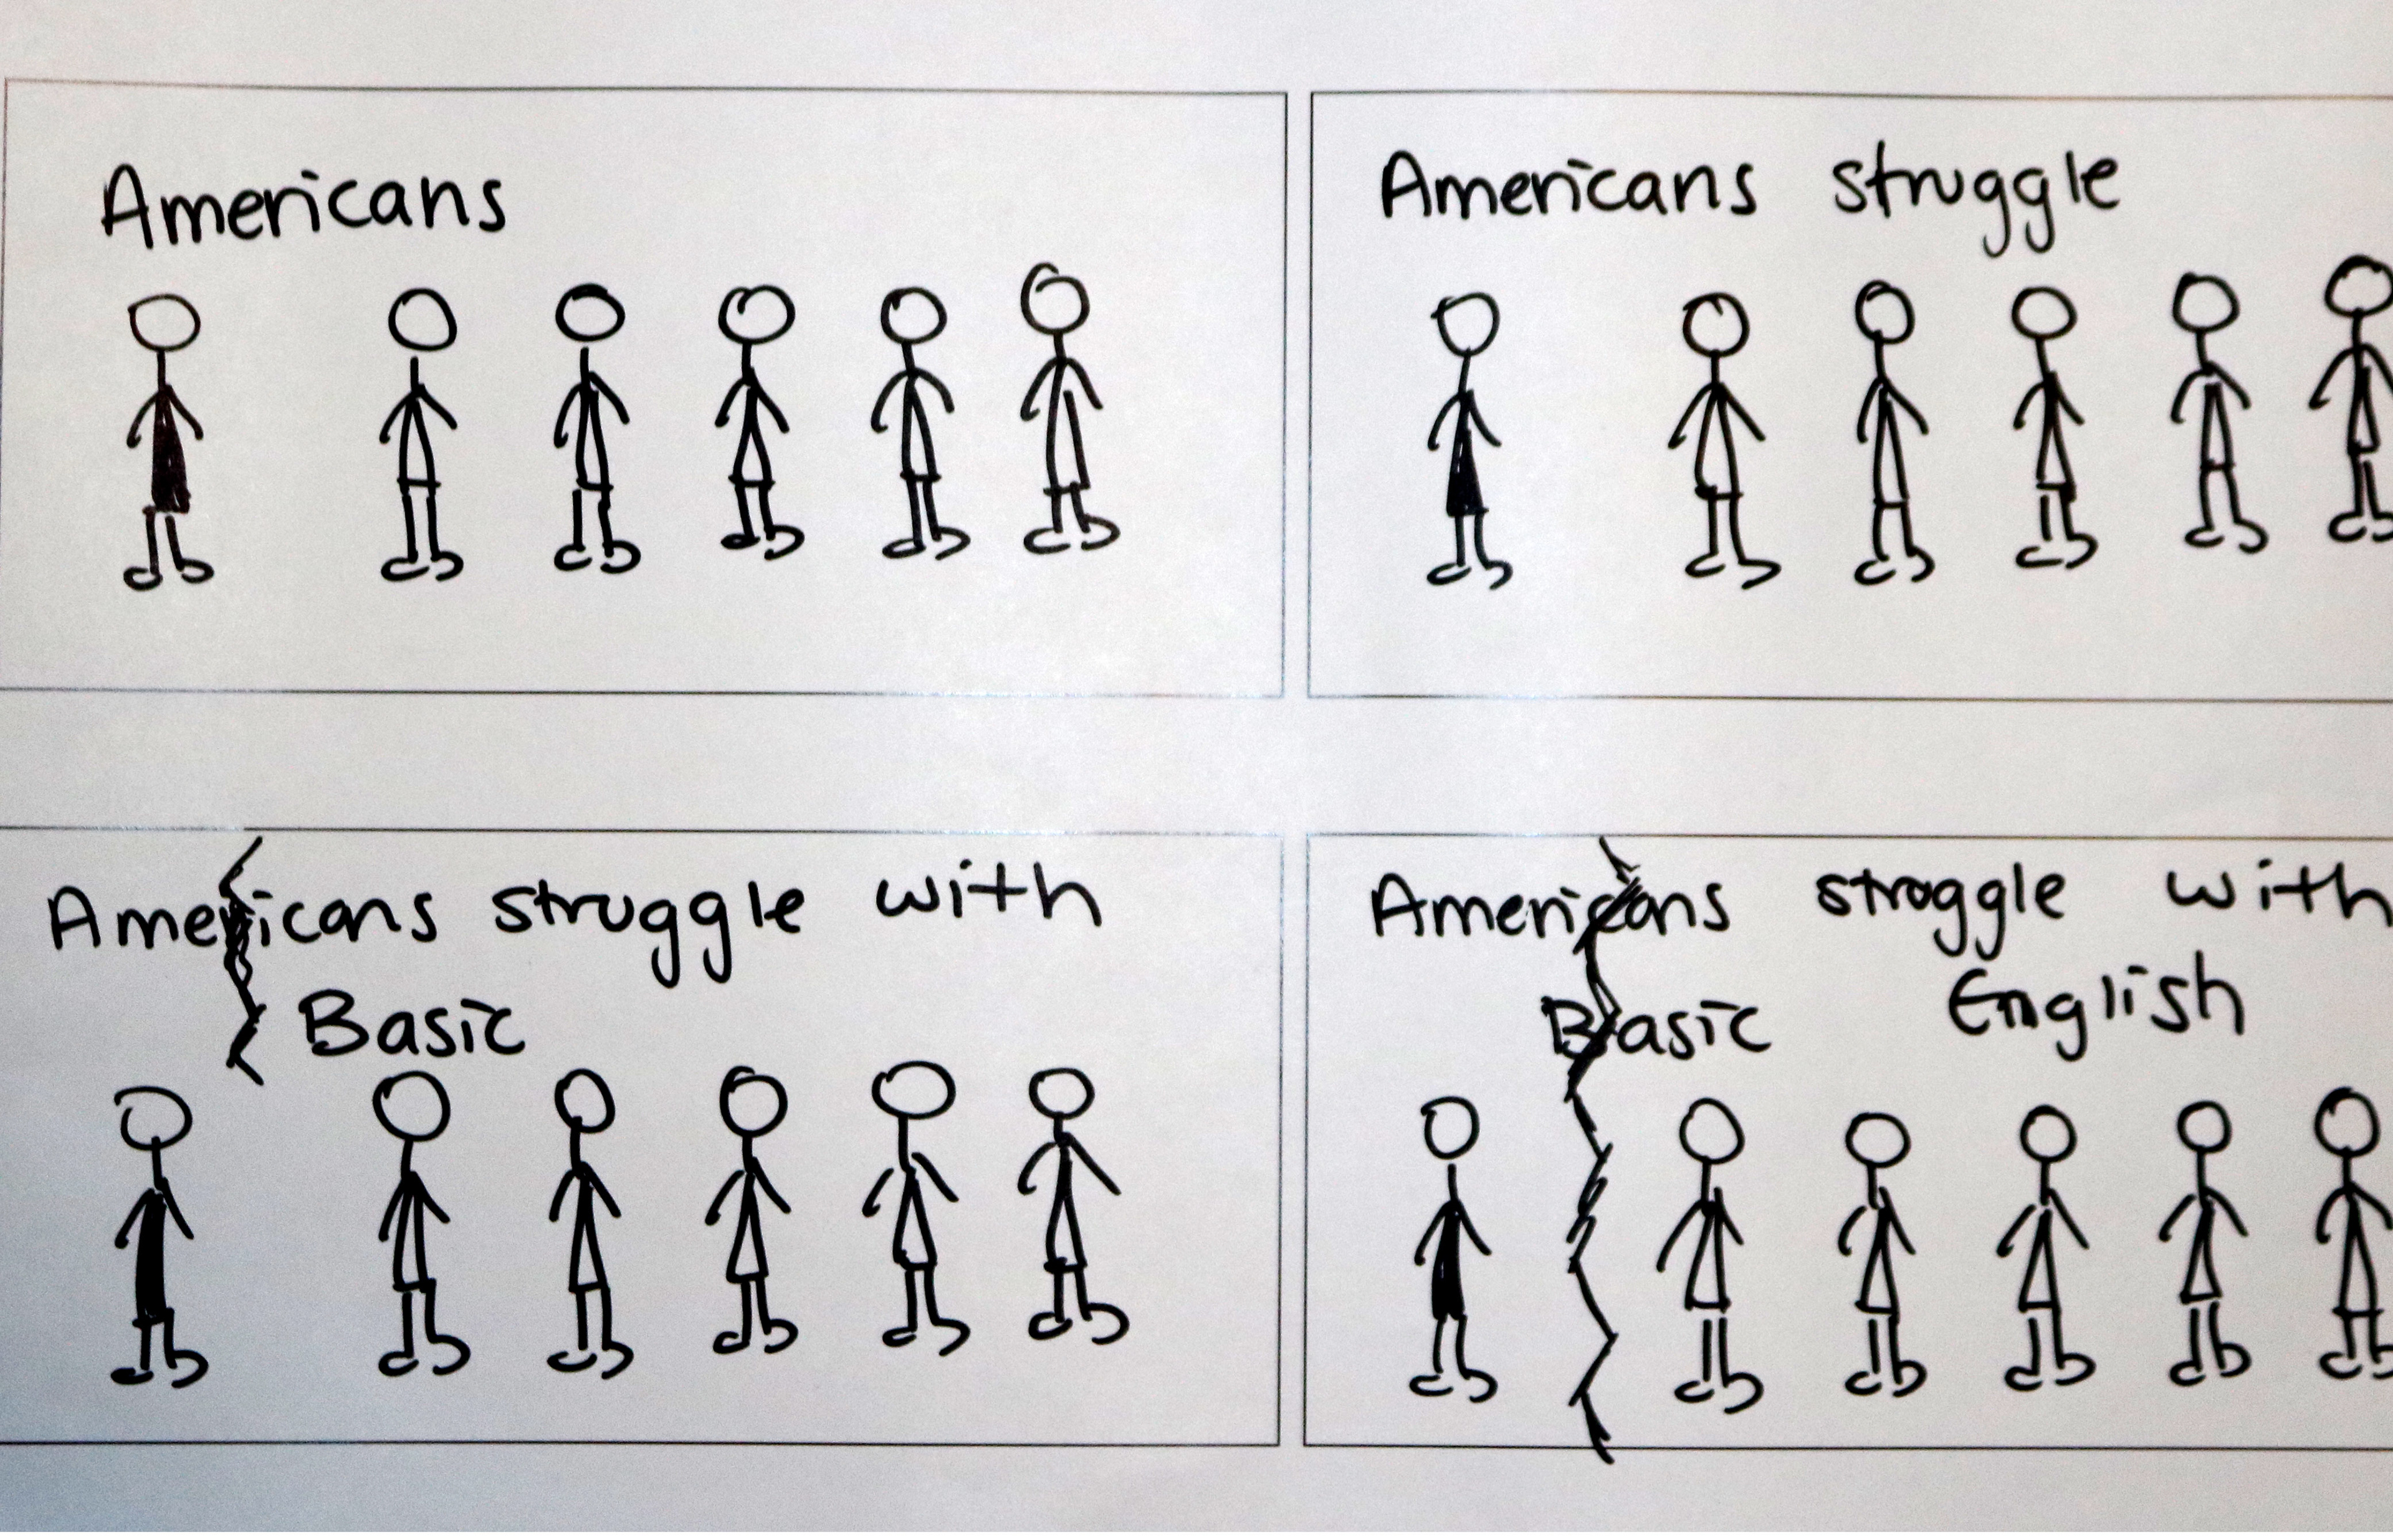 Americans
Americans struggle
Americans struggle with
Basic
Americans struggle with
Basic English